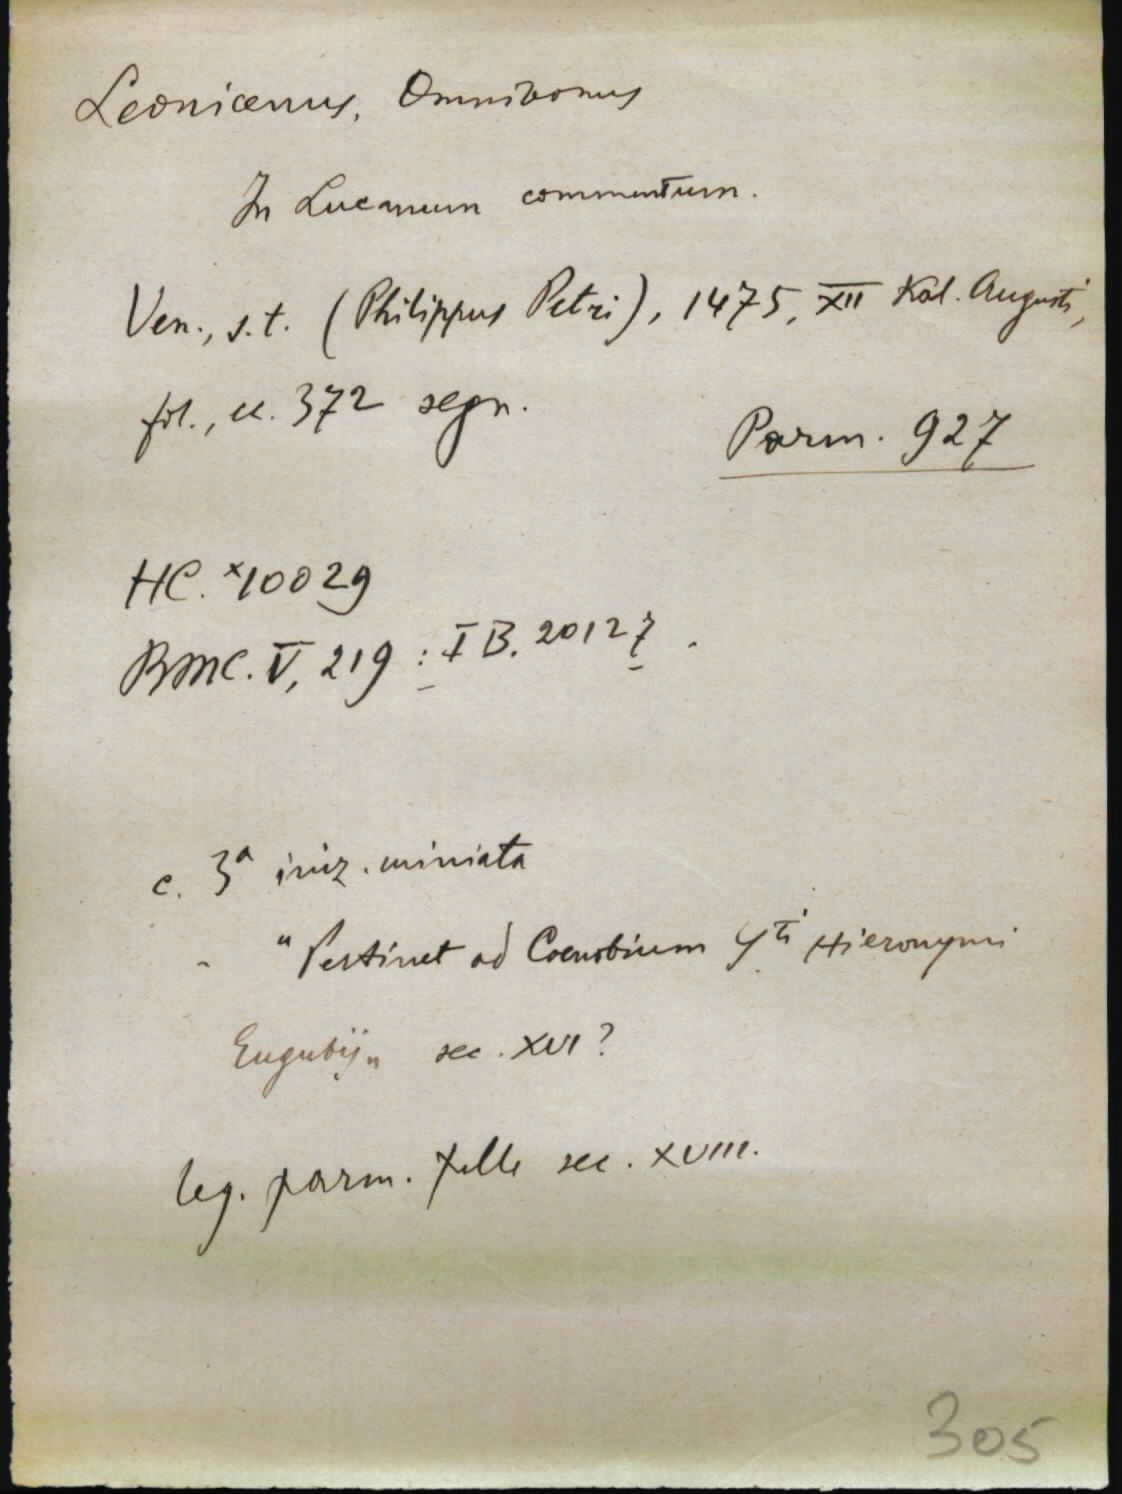 Leonicenus, Omnibonus
In Lucanum commentum.
Ven., s.t. (Philippus Petri), 1475, XII Kal. Augusti,
fol., cc. 372 segn.
Parm. 927
HC. *10029
BMC. V, 219 : IB. 20127.
c. 3ª iniz. miniata
- "Pertinet ad Coenobium Sti Hieronymi
Eugubij" sec. XVI?
leg. parm. pelle sec. XVIII.
305